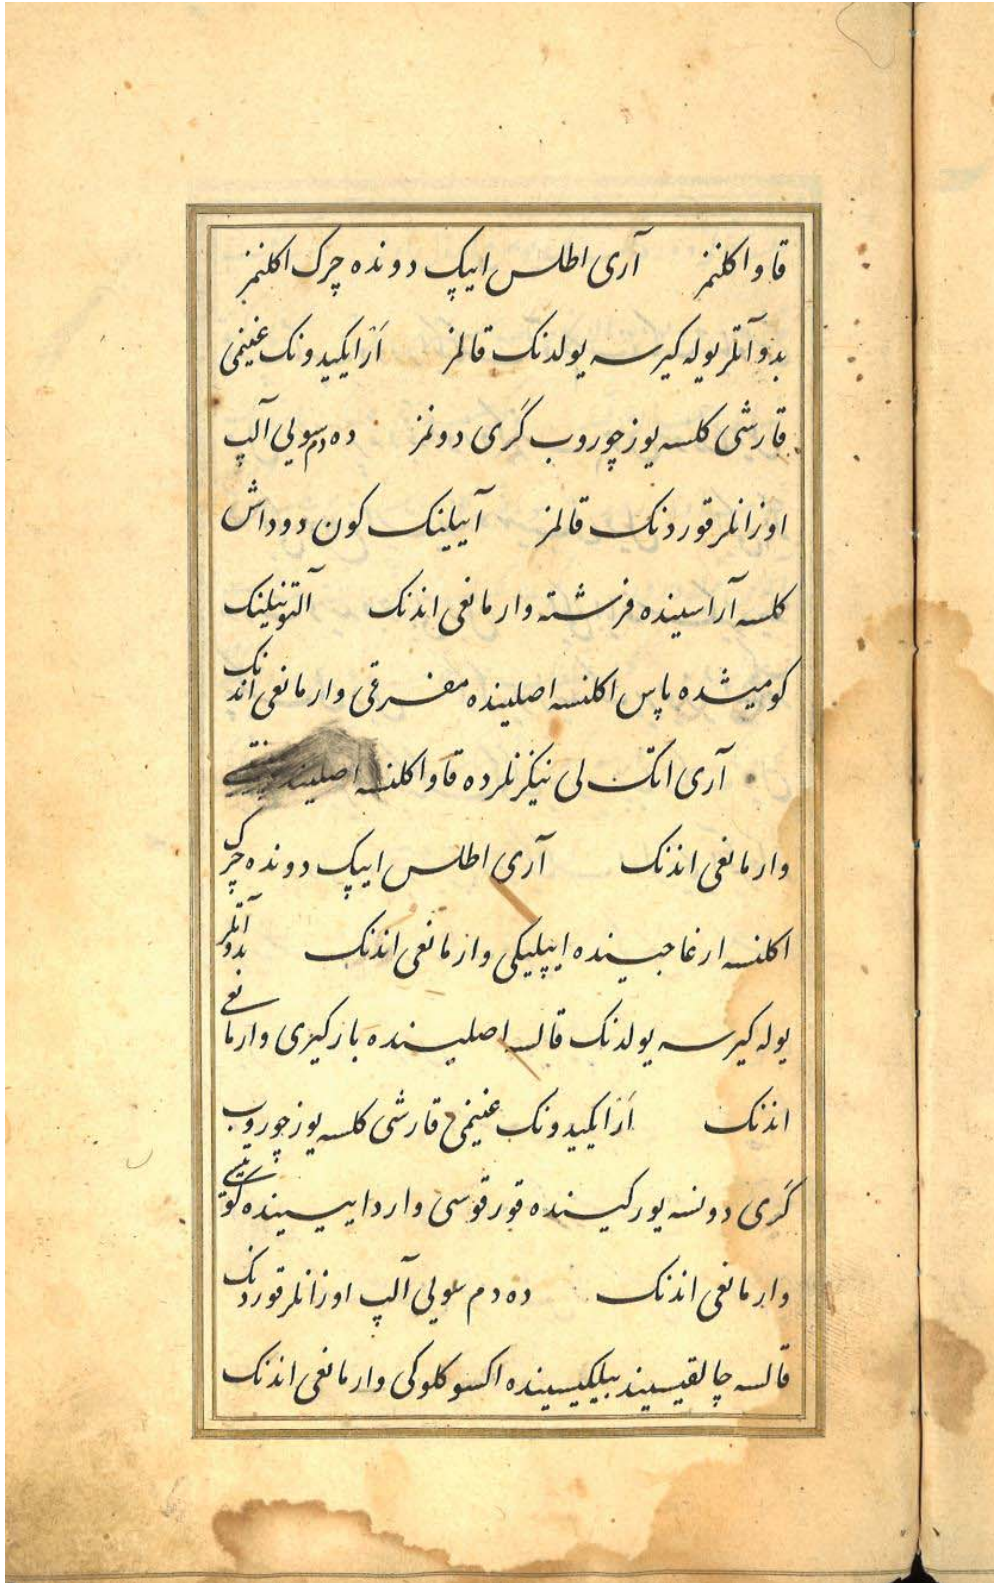 قاو اکلنمز آری اطلس ایپک دونده چرک اکلنمز
بدو آتلر یوله کیرسه یولدنک قالمز اَرَ ایکیدونک غنیمی
قارشی کلسه یوز چوروب گَری دونمز ده دم سویلی آلپ
اوزانلر قوردنک قالمز آییلینک کون دوداش
کلسه آراسینده فرشته وارمانعی اندنک آلتونیلینک
کومیشده پاس اکلنسه اصلینده مفرقی وارمانعی اندنک
آری اتک لی نیکزنلرده قاو اکلنسه اصلینده
وارمانعی اندنک آری اطلس ایپک دونده چرک
اکلنسه ارغاجینده ایپلیکی وارمانعی اندنک بدو آتلر
یوله کیرسه یولدنک قالسه اصلینده بارکیزی وارمانعی
اندنک اَرَ ایکیدونک غنیمی قارشی کلسه یوز چوروب
گَری دونسه یورکینده قورقوسی وار داییسینده
وارمانعی اندنک ده دم سویلی آلپ اوزانلر قوردنک
قالسه چالقیسیند بیلیکیسینده اکسوکلوکی وارمانعی اندنک